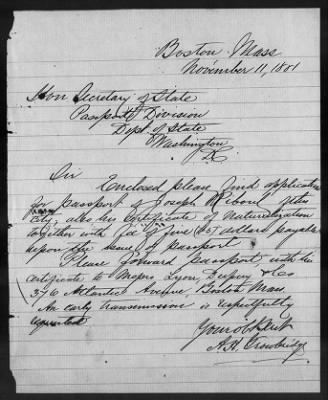 Boston Mass
November 11, 1881
Hon Secretary of State
Passport Division
Dept. of State
Washington
D.C.
Sir
Enclosed please find application
for passport of Joseph of this
city, also his certificate of Naturalization
together with for five dollars payable
upon the issue of passport
Please forward passport with his
certificate to Messrs Lyon & Co
376 Atlantic Avenue Boston Mass.
An early transmission is respectfully
requested
Your ob't Serv't
A.H. Trowbridge